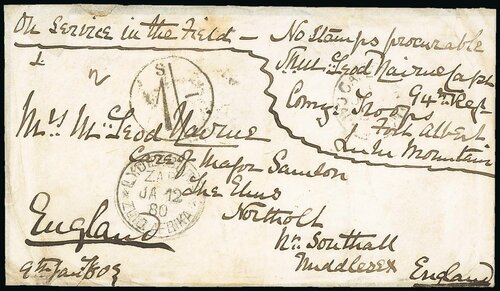 On Service in the Field —
No Stamps procurable
McLeod Nairne Capt
94th Regt
Comg Troops
Fort Albert
Lulu Mountain
Mrs McLeod Nairne
Care of Major Samson
The Elms
Northolt
Nr. Southall
Middlesex
England
England
9th Jany 80
ZAR
JA 12
80
ZUID AFRIKA